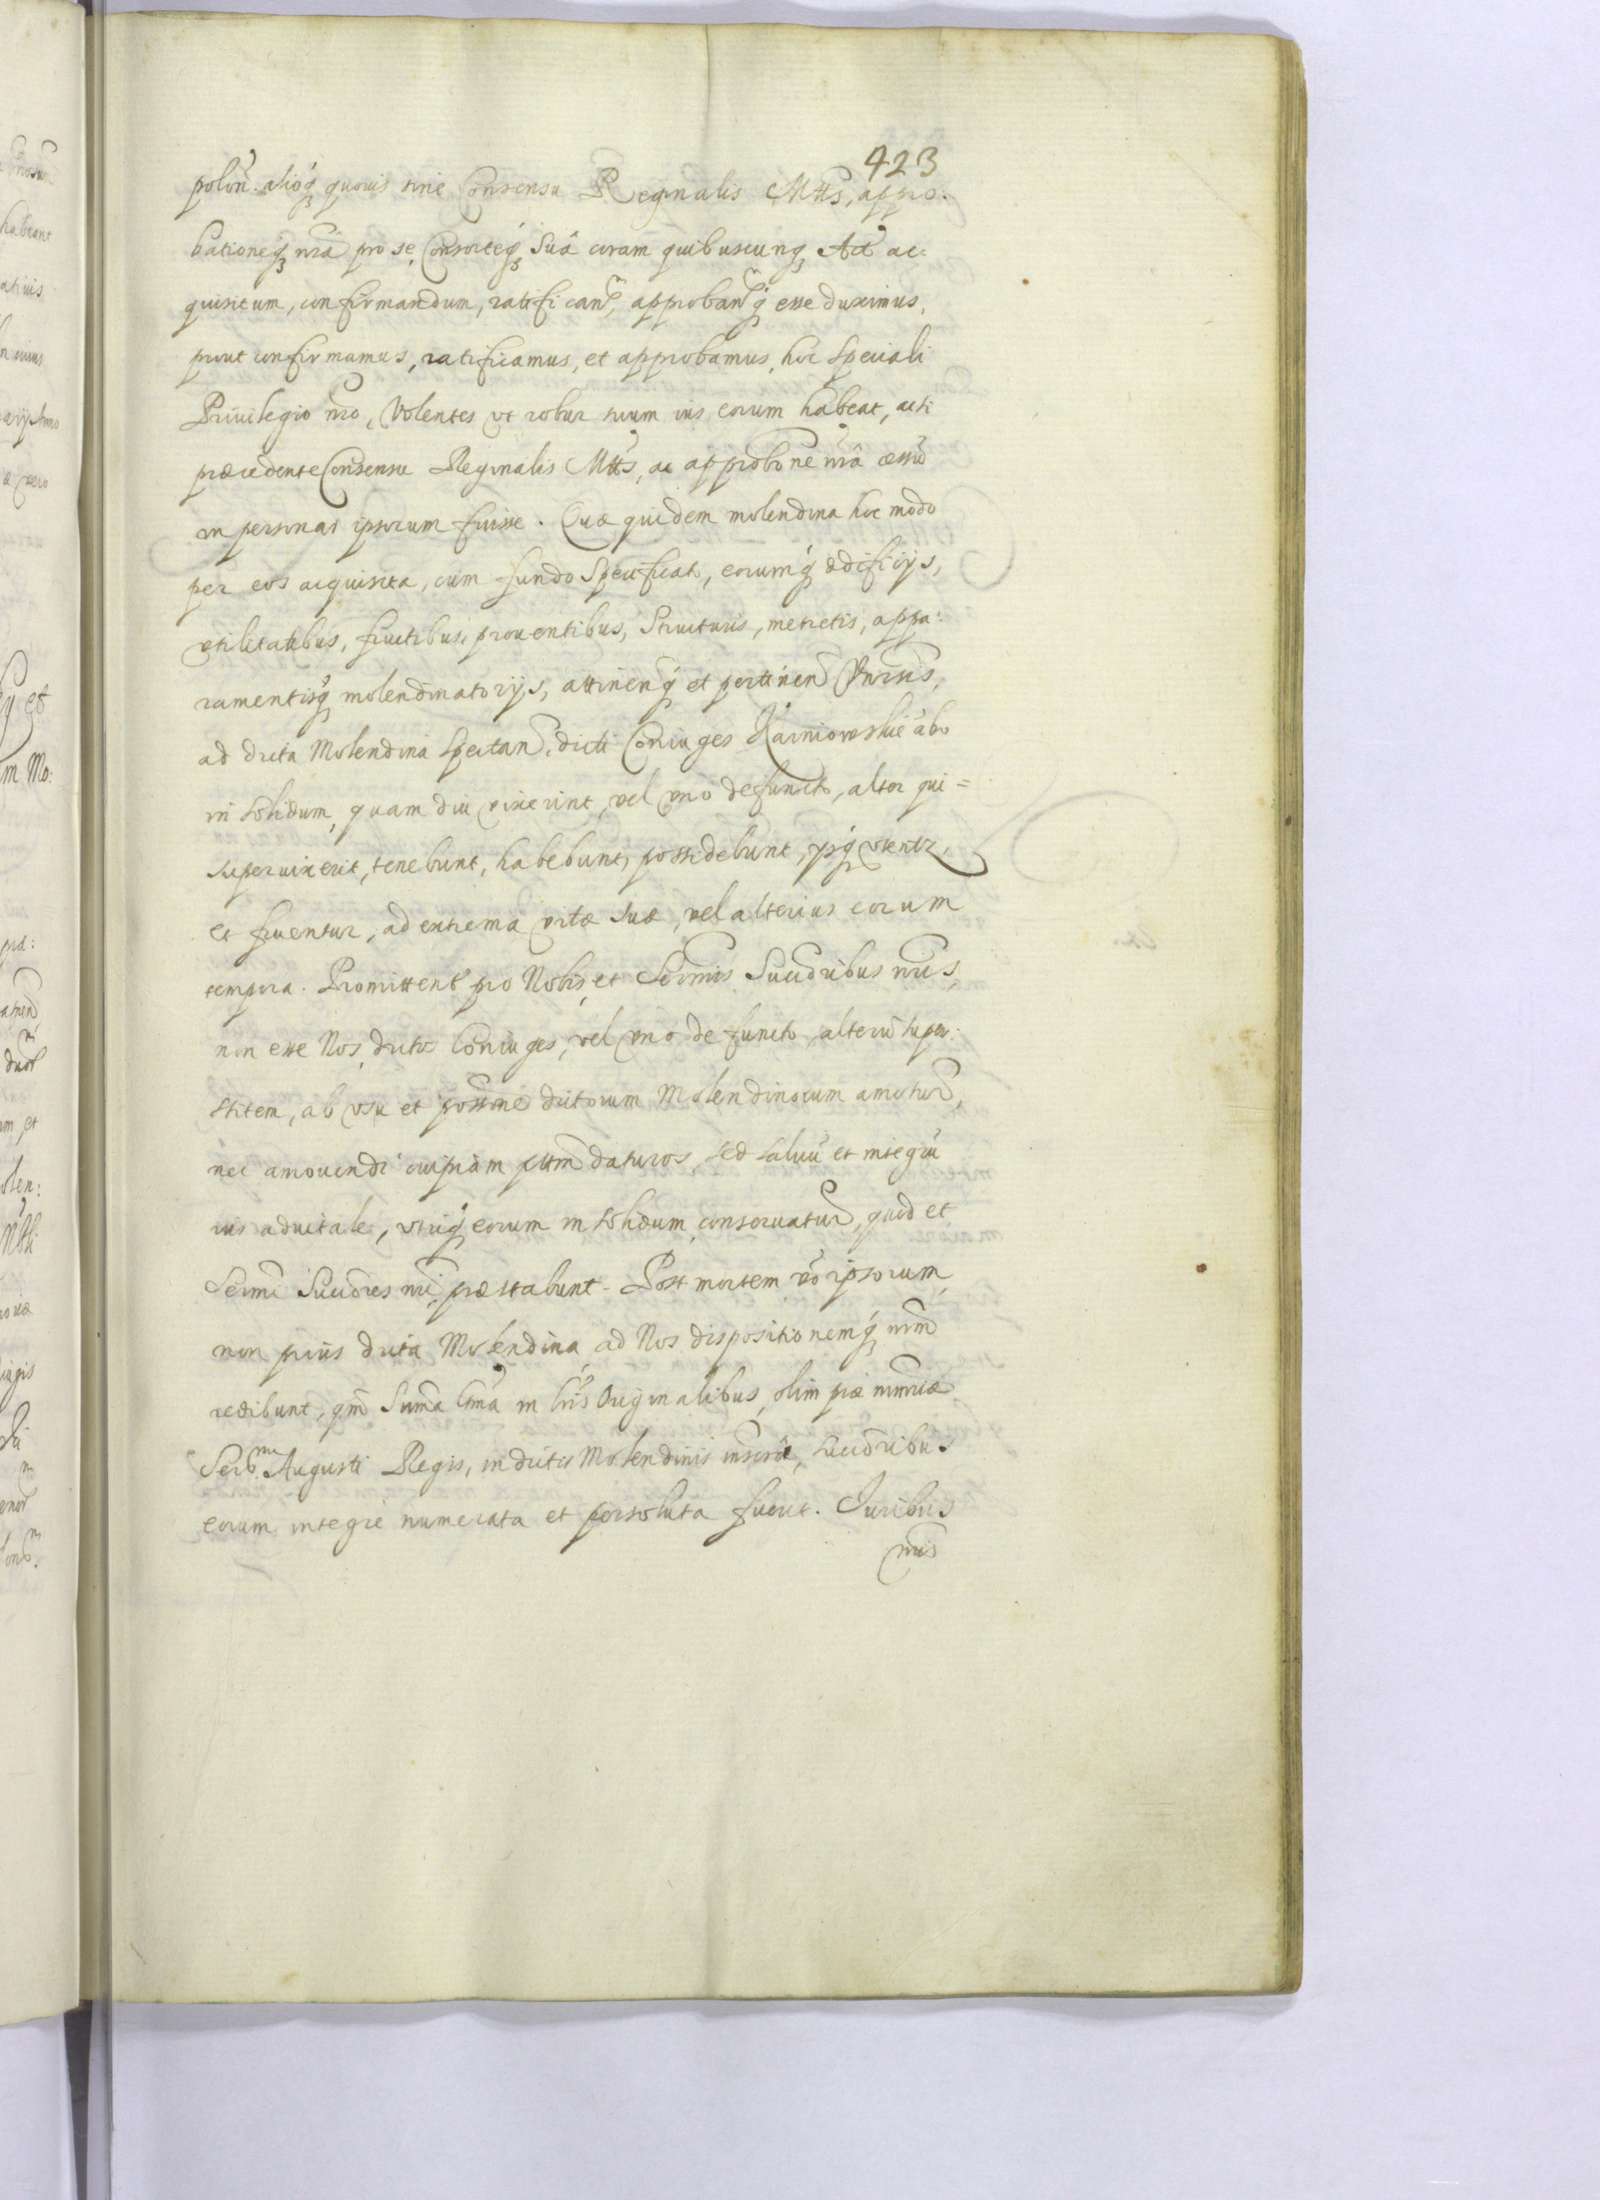 423
polon̄. alioq̨ quouis sine Consensu Reginalis Mttis, appro:
bationeq̨ nrā pro se, Consorteq̨ Suā coram quibuscunq̨ Act ac:
quisitum, confirmandum, ratifican̄, approban̄q̨ esse duximus,
prout confirmamus, ratificamus, et approbamus, hoc speciali
Priuilegio nro, Volentes vt robur suum ius eorum habeat, acti
præcedente Consensu Reginalis Mttis, ac approbōne nrā
in personas ipsorum fuisse. Quæ quidem molendina hoc modo
per eos acquisita, cum fundo specificato, eorumq̨ ædificijs,
vtilitatibus, fructibus, prouentibus, structuris, metretis, appa:
ramentisq̨ molendinatorijs, attinen̄q̨ et pertinen̄ Vniuersis,
ad dicta Molendina spectan̄, dicti Coniuges Karniowskie abo
in solidum, quam diu vixerint, vel vno defuncto, alter qui=
superuixerit, tenebunt, habebunt, possidebunt, ysq̨ vtentr,
et fruentur, ad extrema vitæ suæ, vel alterius eorum
tempora. Promitten̄ pro Nobis, et Sermis Succōribus nris,
non esse Nos, dictos Coniuges, vel vno defuncto, alterū super:
stitem, ab vsu et possnē dictorum Molendinorum amotur̄,
nec amouendi cuipiam ptm̄ daturos, sed saluū et integrū
ius aduitale, vtriq̨ eorum in solidum conseruatur̄, quod et
Sermi Succōres nri, præstabunt. Post mortem vō ipsorum,
non prius dicta Molendina ad Nos dispositionemq̨ nrm̄
redibunt, qm̄ Suma in lris Originalibus, olim piæ mmriæ
Ser. Augusti Regis, in dictis Molendinis inscrīe, succōribus
eorum integre numerata et persoluta fuerit. Iuribus
nris